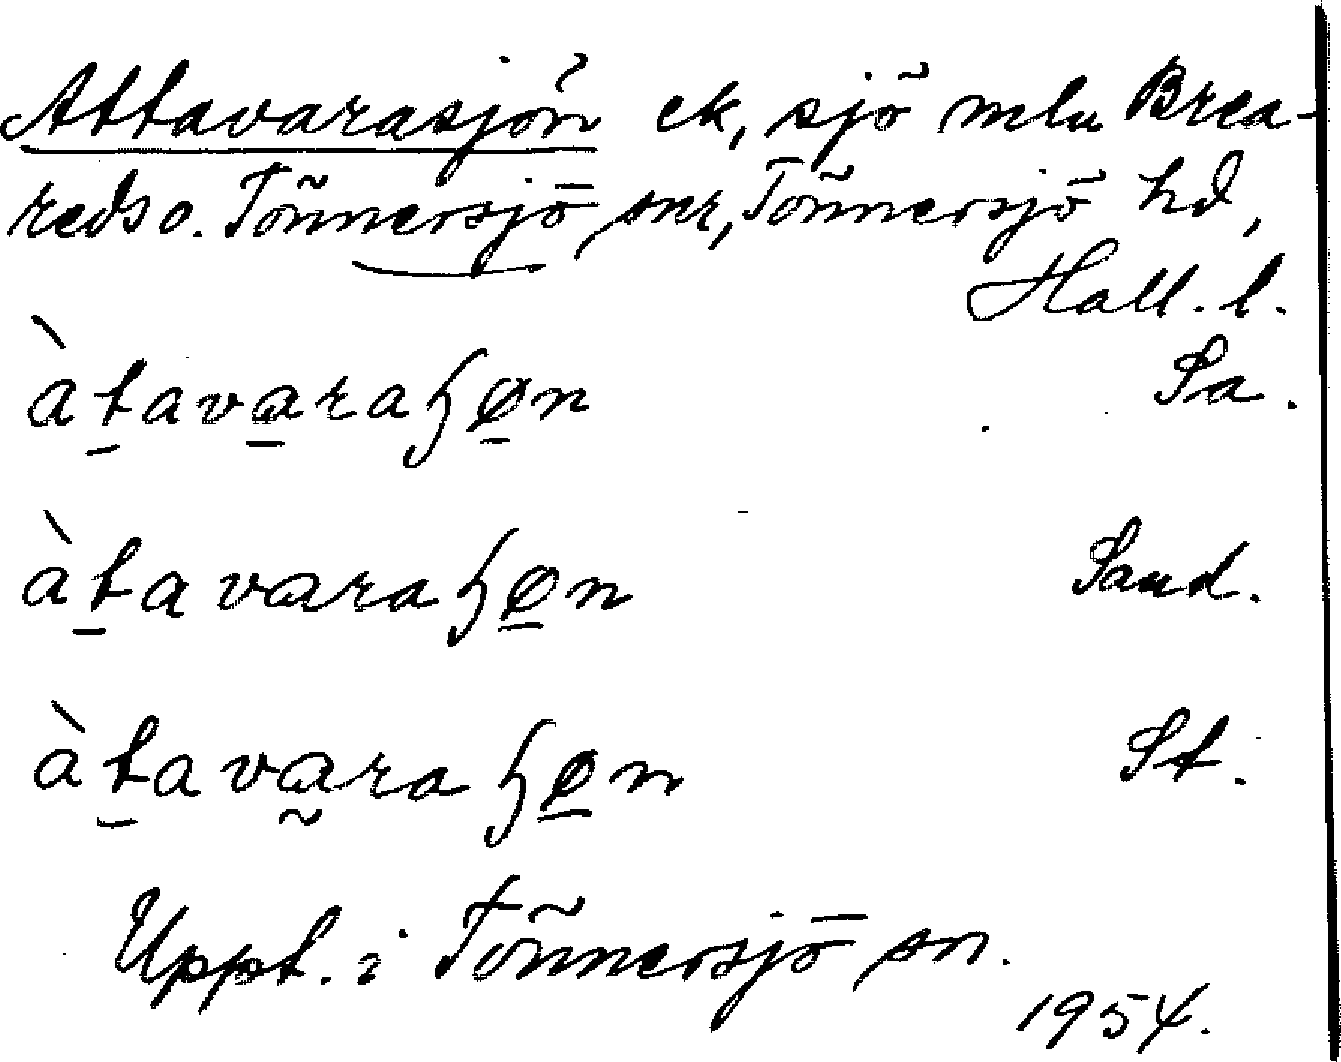 Attavarasjön ek, sjö mln Brea-
reds o. Tönnersjö snr, Tönnersjö hd,
Hall. l.
àt̠ava̠raɧø̠n Sa.
àt̠avaraɧø̠n Sand.
àt̠ava̰raɧø̠n St.
Uppt. i Tönnersjö sn.
1954.